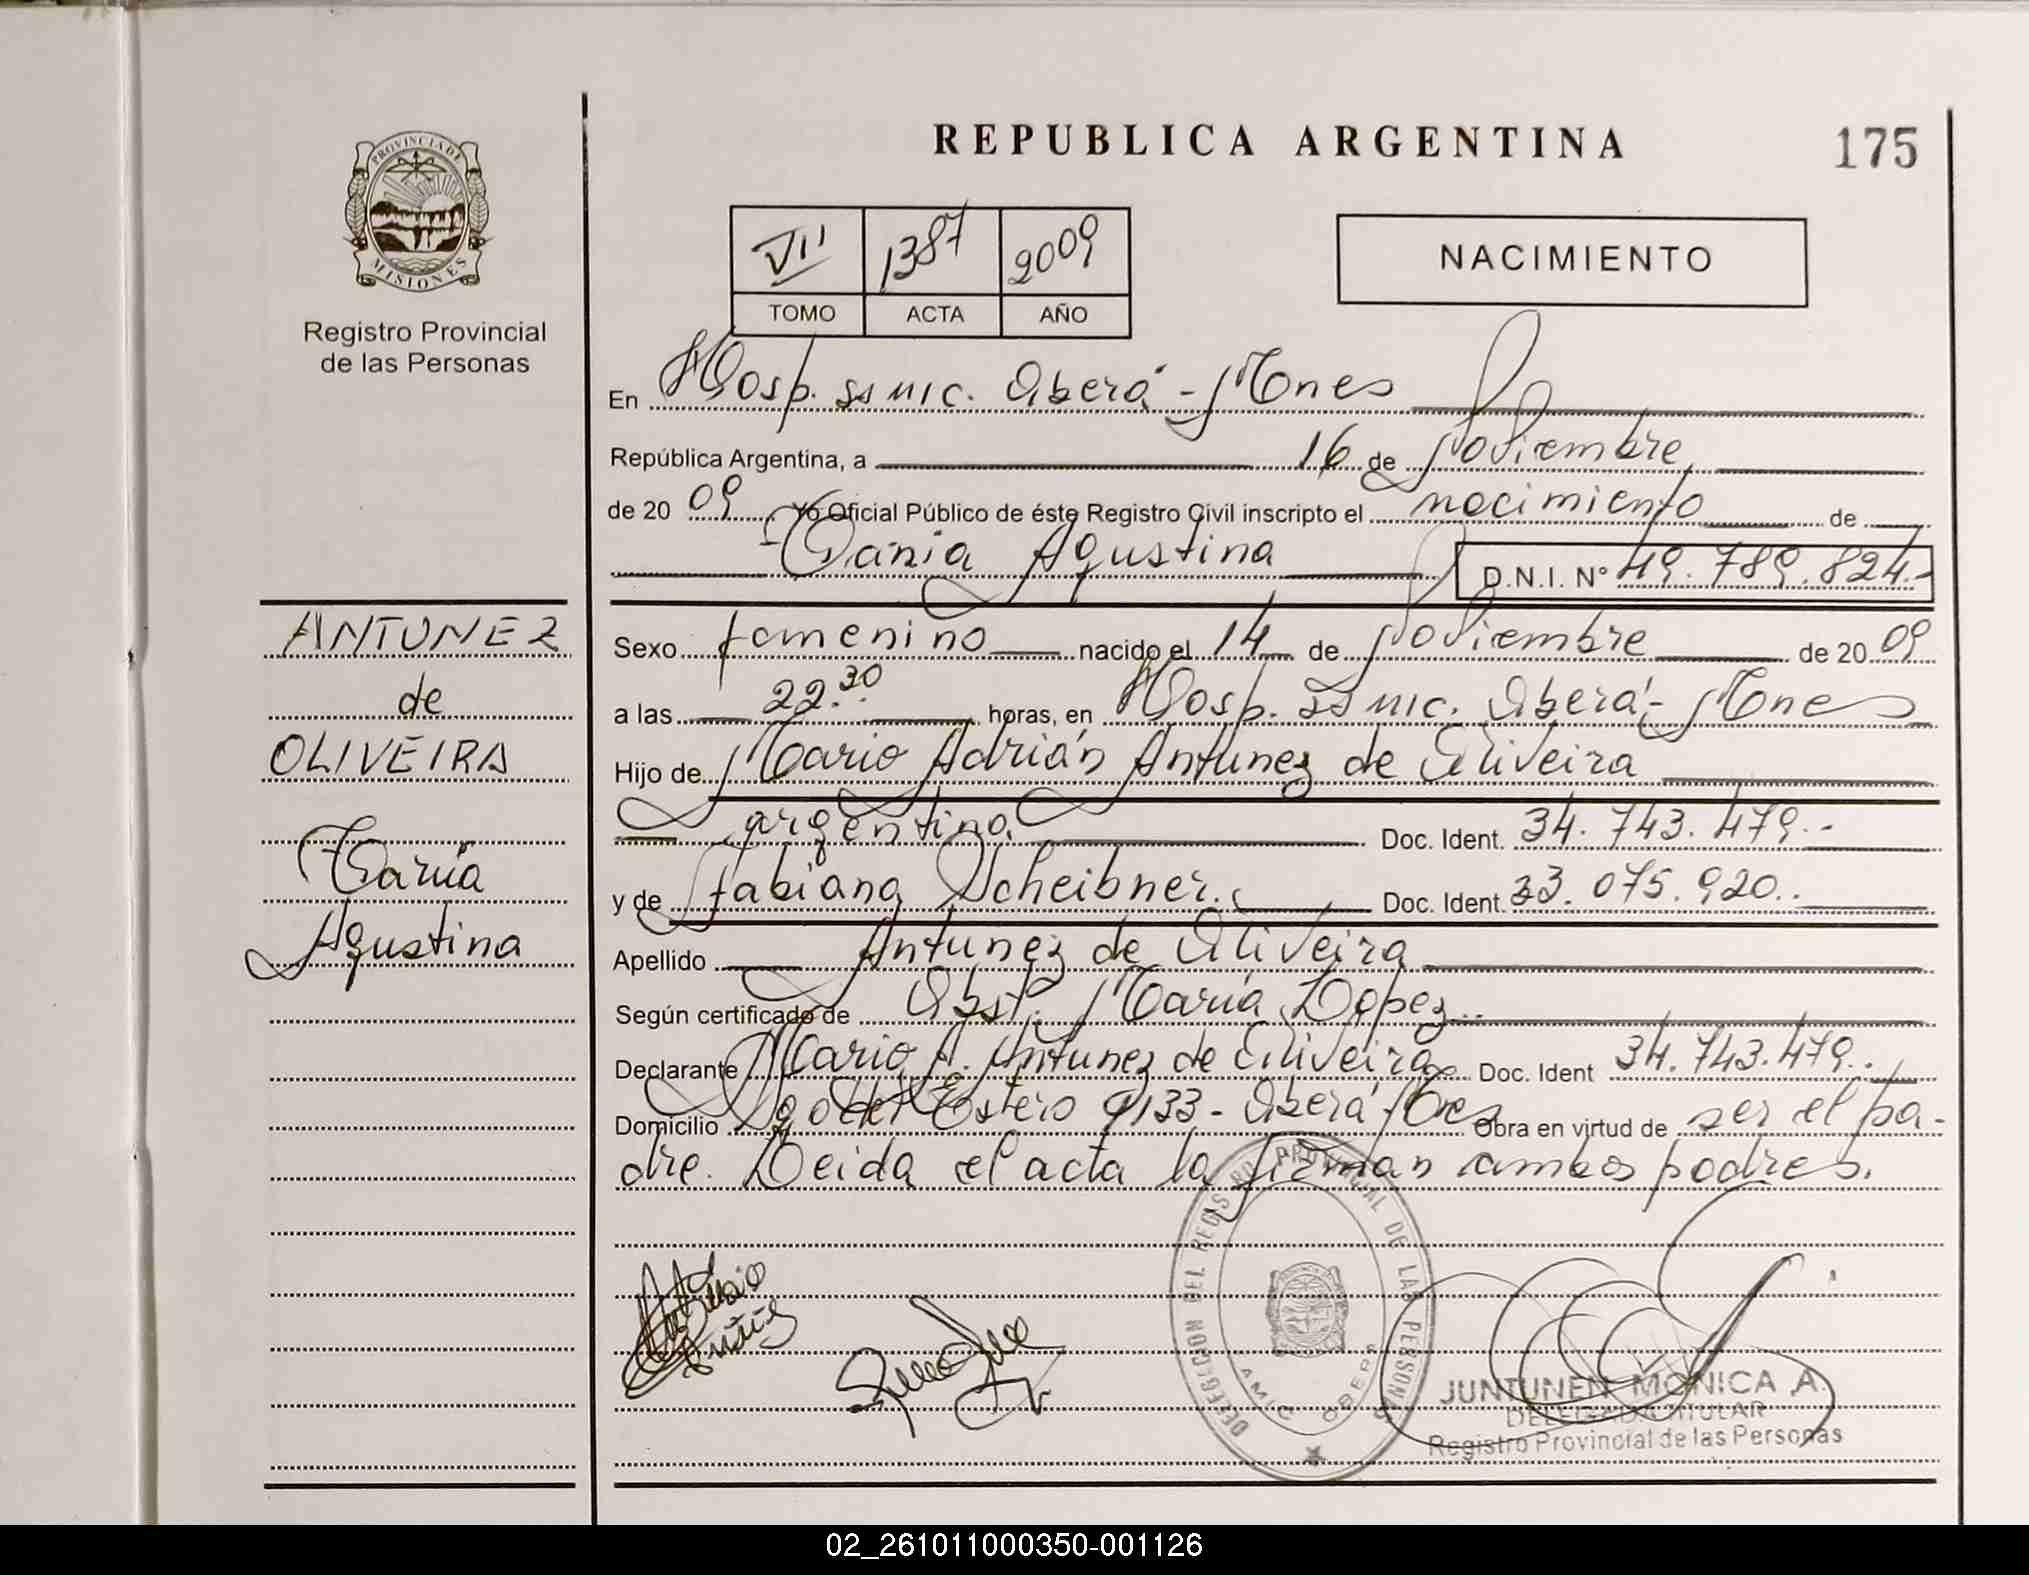 REPUBLICA ARGENTINA
175
PROVINCIA DE
MISIONES
Registro Provincial
de las Personas
VII 1387 2009
TOMO ACTA AÑO
NACIMIENTO
En Hosp. ss mic. Oberá - Mones
República Argentina, a 16 de Noviembre
de 20 09 Yo Oficial Público de éste Registro Civil inscripto el nacimiento de
Tania Agustina
D.N.I. Nº 49.789.824.-
ANTUNEZ
de
OLIVEIRA
Tania
Agustina
Sexo femenino nacido el 14 de Noviembre de 20 09
a las 22.30 horas, en Hosp. ss mic. Oberá - Mones
Hijo de Mario Adrián Antunez de Oliveira
argentino Doc. Ident. 34.743.479.-
y de Fabiana Scheibner. Doc. Ident. 33.075.920..
Apellido Antunez de Oliveira
Según certificado de Obst. María Lopez..
Declarante Mario A. Antunez de Oliveira Doc. Ident 34.743.479..
Domicilio Sgo del Estero 9133 - Oberá Obra en virtud de ser el pa-
dre. Leida el acta la firman ambos padres.
DELEGACION DEL REGISTRO PROVINCIAL DE LAS PERSONAS
OBERA
JUNTUNEN MONICA A.
DELEGADA TITULAR
Registro Provincial de las Personas
02_261011000350-001126